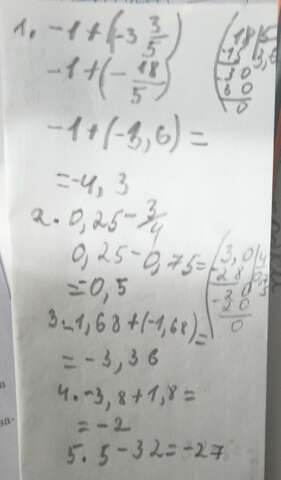 1. -1+(-3 3/5)
-1+(-18/5)
-1+(-3,6)=
=-4,3
2. 0,25-3/4
0,25-0,75=
=-0,5
3. -1,68+(-1,68)=
=-3,36
4. -3,8+1,8=
=-2
5. 5-32=-27
18|5
-15|3,6
-30
30
0
3,0|4
-28|0,75
-20
20
0